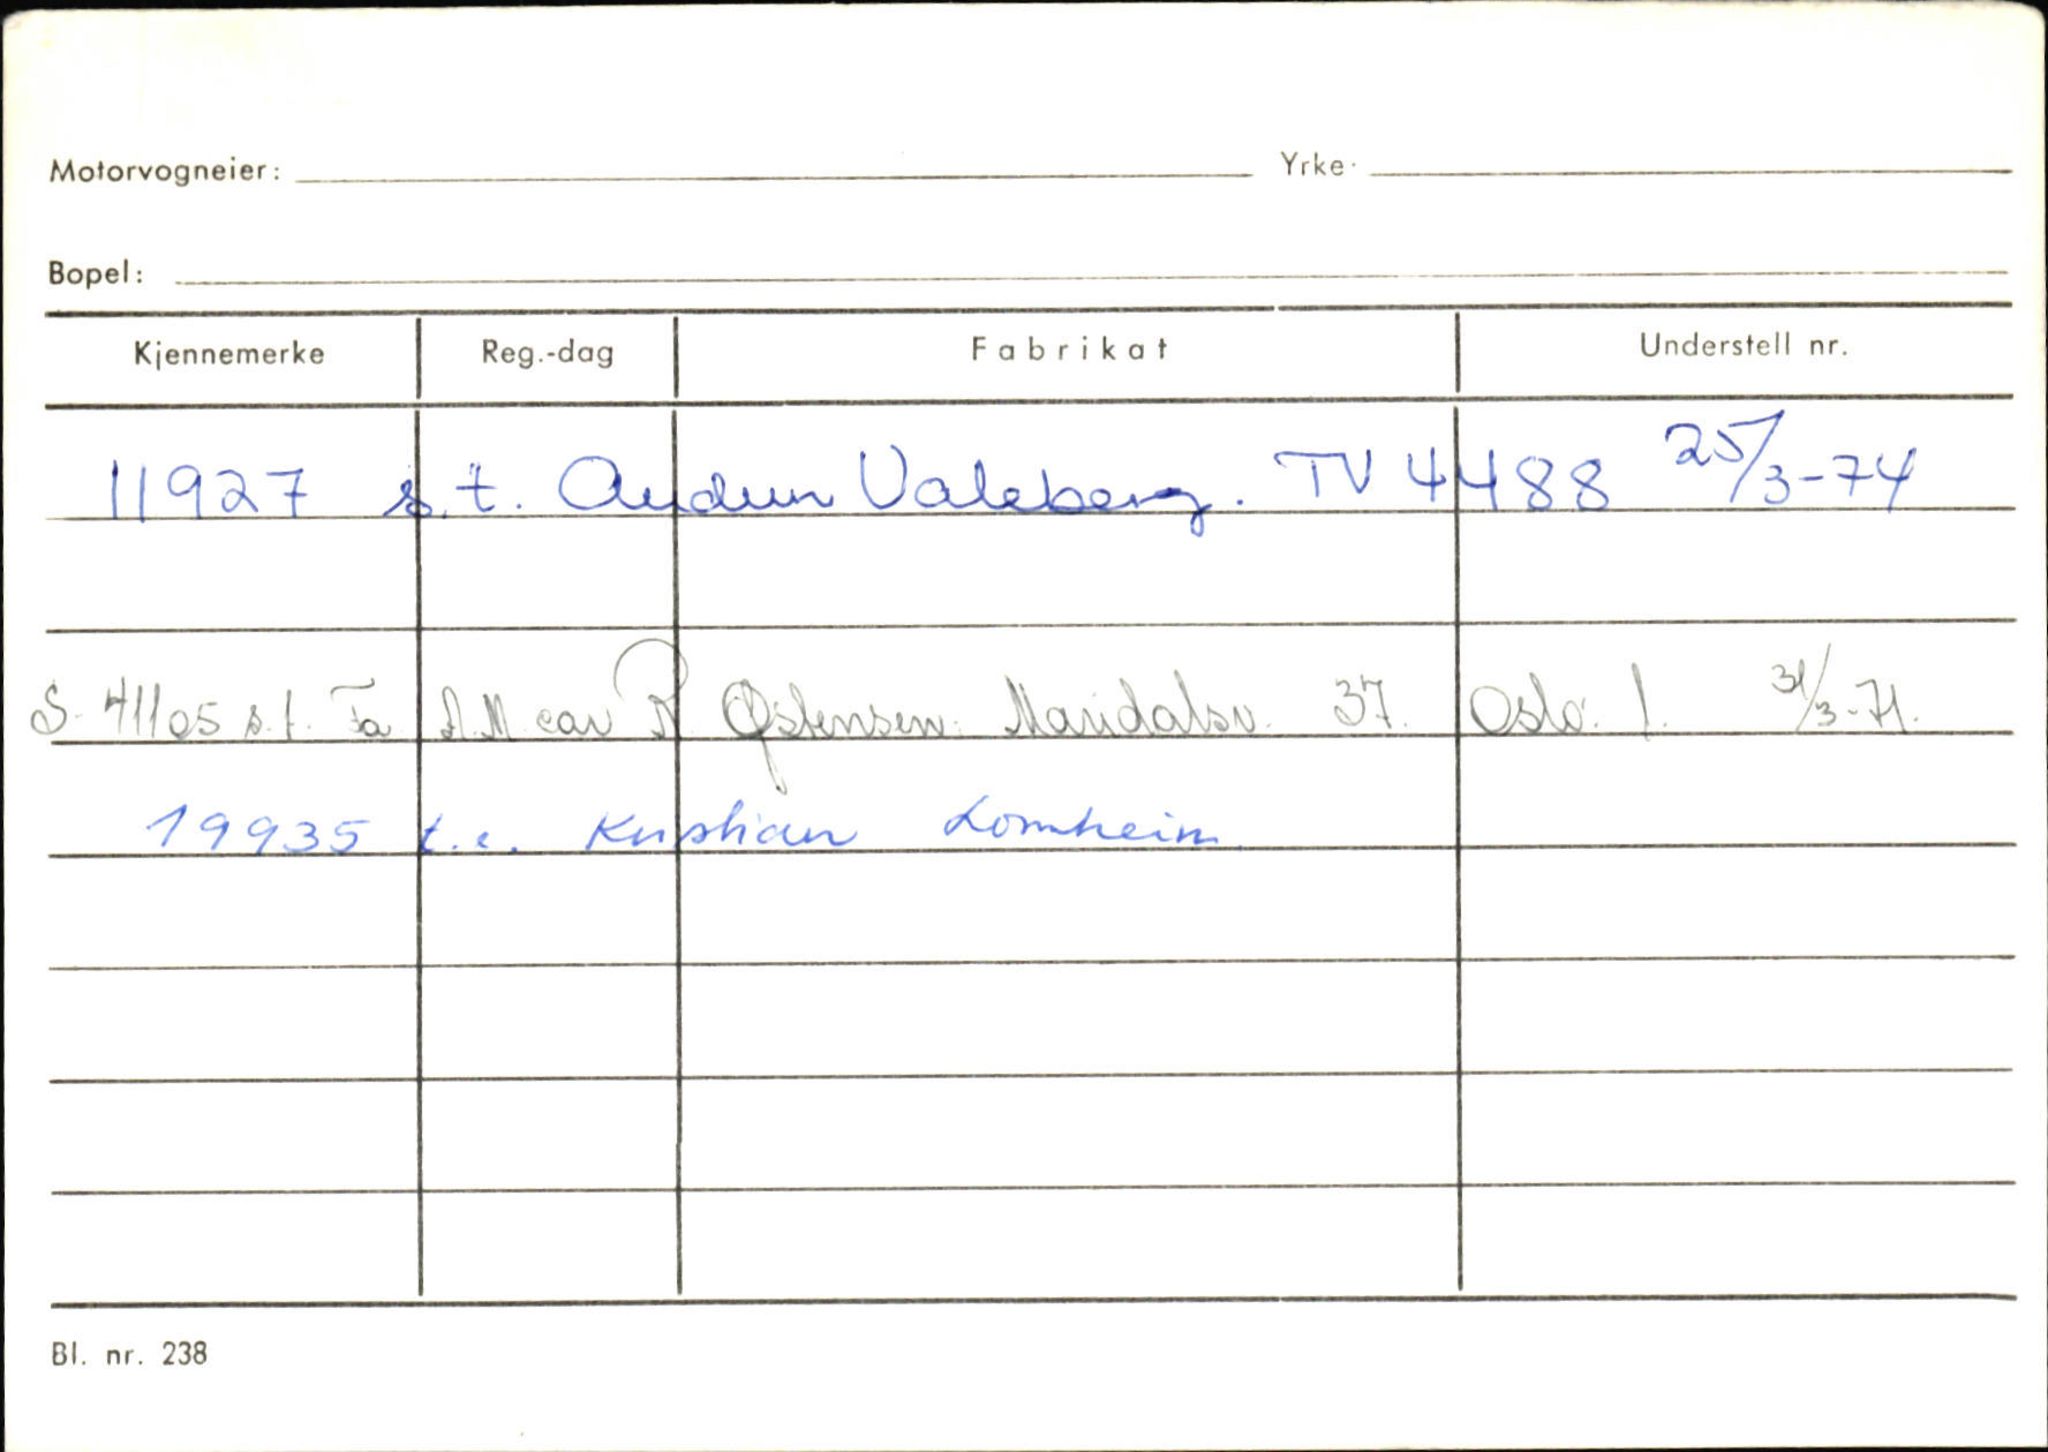 Motorvogneier: Yrke
Bopel:
Kjennemerke Reg.-dag Fabrikat Understell nr.
11927 s.t. Audun Valeberg. TV 4488 25/3-74
S-41105 s.t. Fa A.M. car Østensen. Maridalsv. 37. Oslo. 1. 31/3-71.
19935 t.e. Kristian Lomheim.
Bl. nr. 238